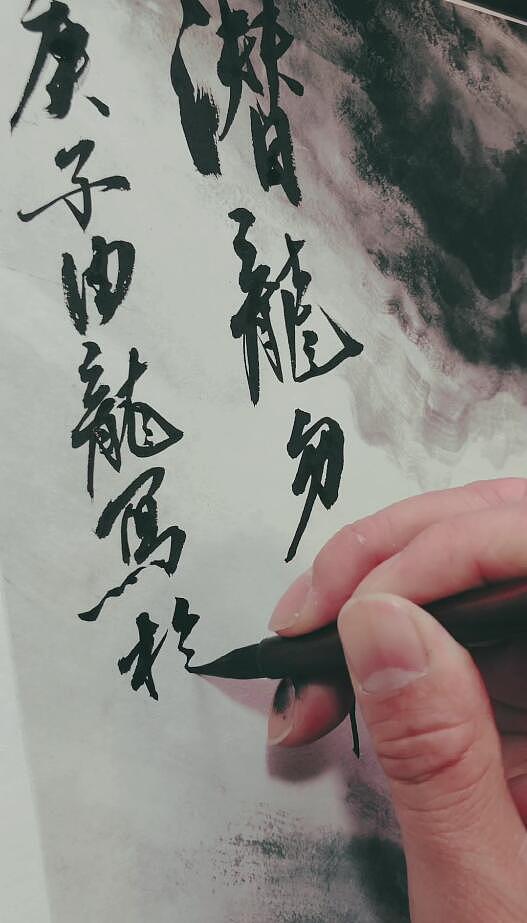 潛龍勿
庚子由龍寫於